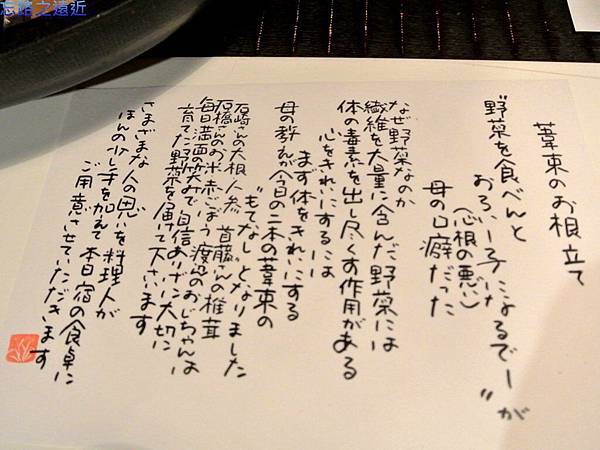 忘路之遠近
葦束のお根立て
野菜を食べんと
おろいー子になるでーが〃
(心根の悪い)
母の口癖だった
なぜ野菜なのか
繊維を大量に含んだ野菜には
体の毒素を出し尽くす作用がある
心をきれいにするには
まず体をきれいにする
母の教えが今日の二本の葦束の
"もてなし"となりました
石崎さんの大根人参 首藤さんの椎茸
石橋さんのお米赤ごぼう 渡辺のおじちゃんは
毎日満面の笑みで自信ありげに大切に
育てた野菜を届けて下さいます
さまざまな人の思いを料理人が
ほんの少し手を加えて本日宿の食卓に
ご用意させていただきます